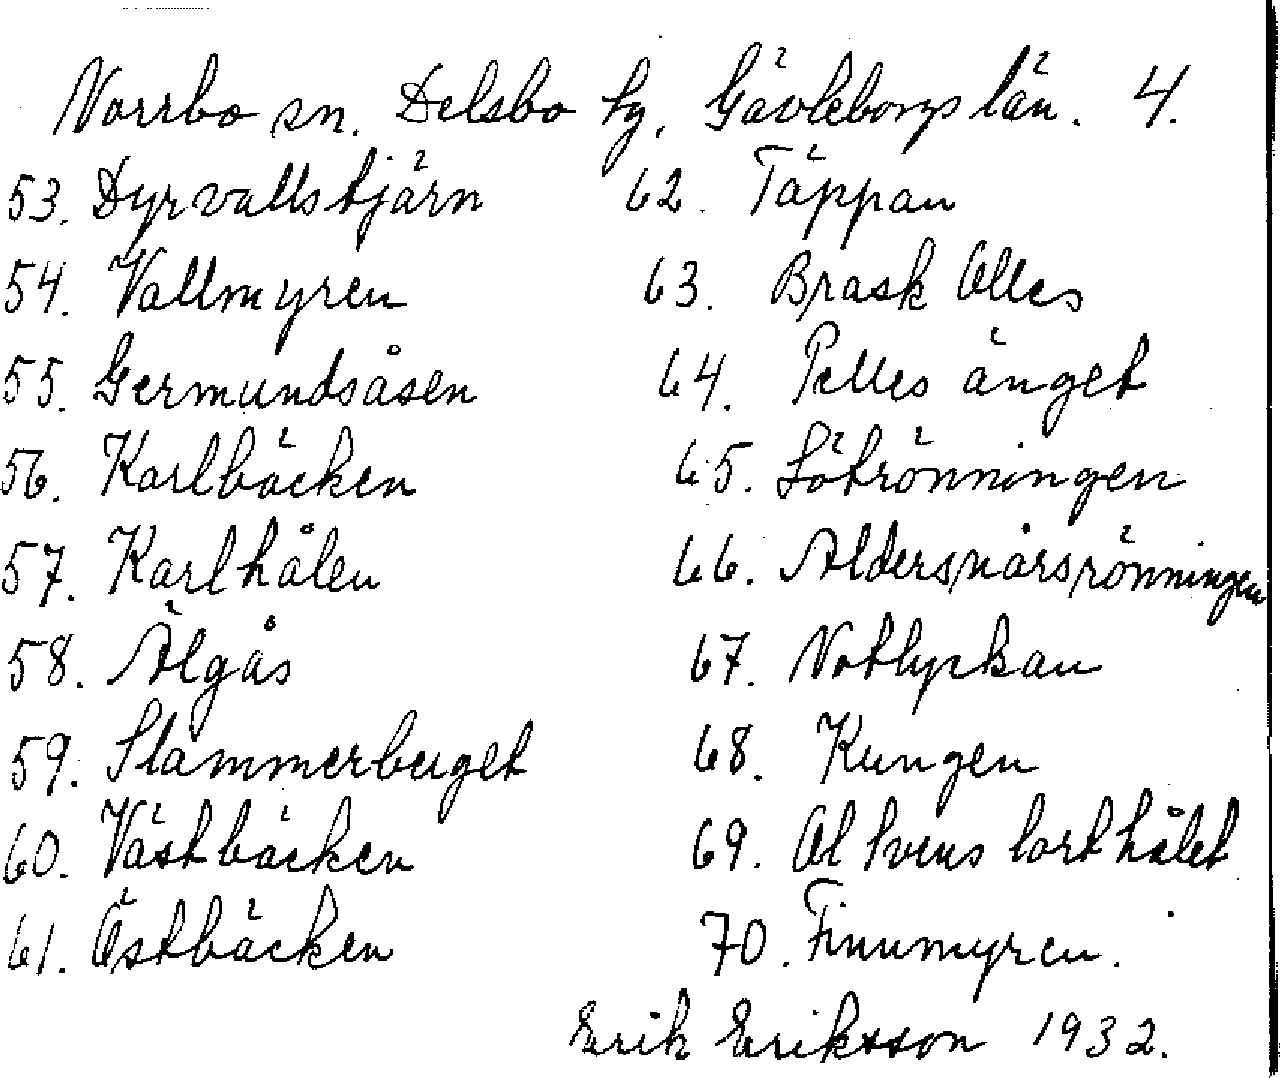 Norrbo sn. Delsbo tg. Gävleborgs län. 4.
53. Dyrvallstjärn
54. Vallmyren
55. Germundsåsen
56. Karlbäcken
57. Karlhålen
58. Älgås
59. Slammerberget
60. Västbäcken
61. Östbäcken
62. Täppan
63. Brask Olles
64. Pelles änget
65. Lötrönningen
66. Aldersnårsrönningen
67. Notlyckan
68. Kungen
69. Ol Svens lorthålet
70. Finnmyren.
Erik Eriksson 1932.